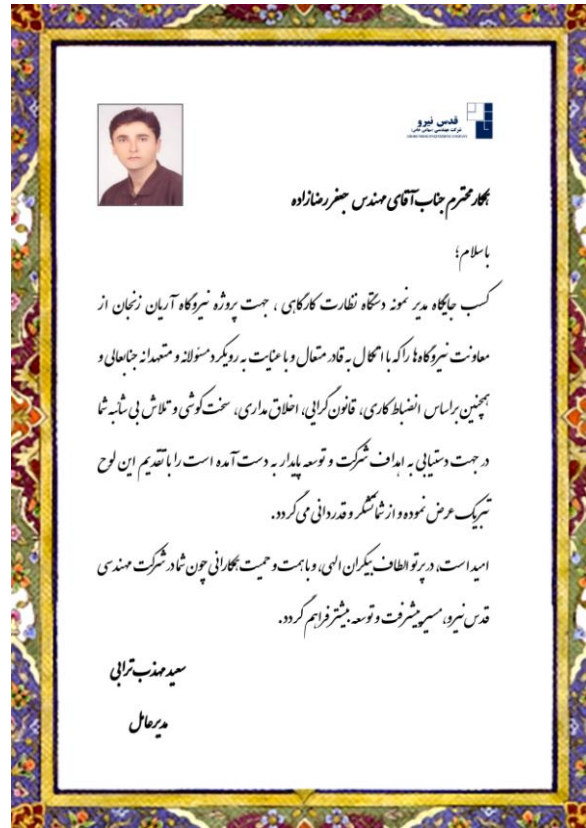 قدس نیرو
همکار محترم جناب آقای مهندس جعفر رضازاده
باسلام؛
کسب جایگاه مدیر نمونه دستگاه نظارت کارگاهی ، جهت پروژه نیروگاه آریان زنجان از
معاونت نیروگاه‌ها را که با اتکال به قادر متعال و با عنایت به رویکرد مسئولانه و متعهدانه جنابعالی و
همچنین براساس انضباط کاری، قانون گرایی، اخلاق مداری، سخت کوشی و تلاش بی شائبه شما
در جهت دستیابی به اهداف شرکت و توسعه پایدار به دست آمده است را با تقدیم این لوح
تبریک عرض نموده و از شما تشکر و قدردانی می گردد.
امید است، در پرتو الطاف بیکران الهی، و با همت و حمیت همکارانی چون شما در شرکت مهندسی
قدس نیرو، مسیر پیشرفت و توسعه بیشتر فراهم گردد.
سعید مهذب ترابی
مدیرعامل